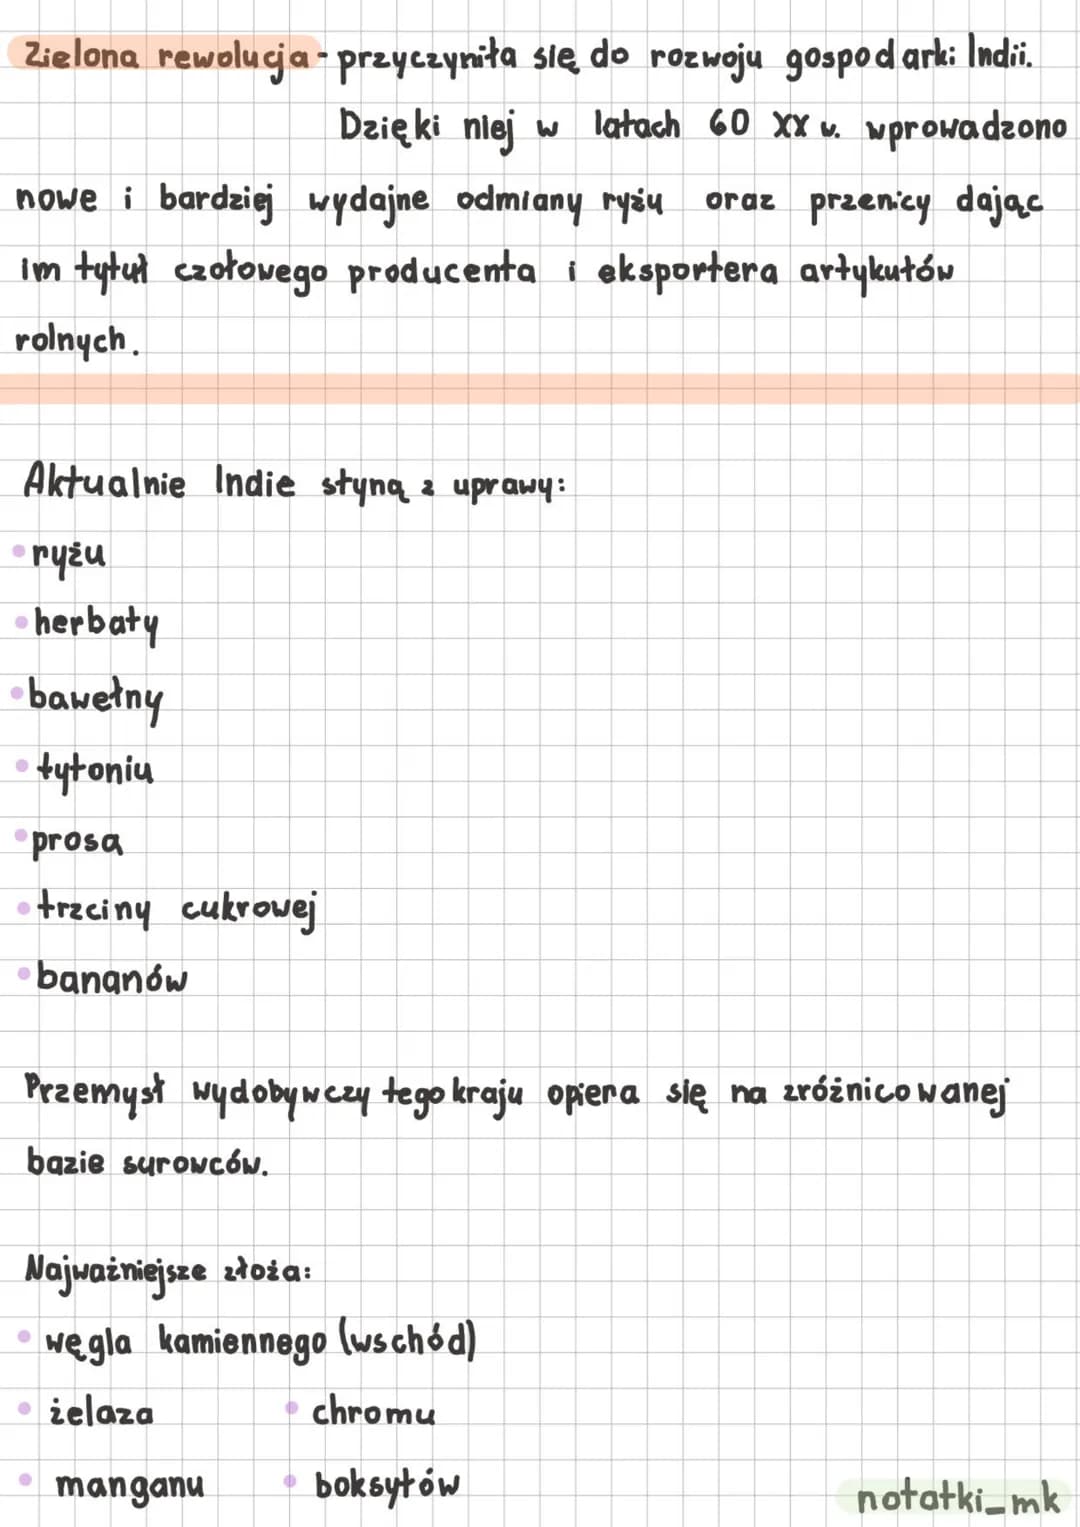 Zielona rewolucja - przyczyniła się do rozwoju gospodarki Indii.
Dzięki niej w latach 60 XX w. wprowadzono
nowe i bardziej wydajne odmiany ryżu oraz przenicy dając
im tytuł czołowego producenta i eksportera artykułów
rolnych.
Aktualnie Indie słyną z uprawy:
• ryżu
• herbaty
• bawełny
• tytoniu
• prosa
• trzciny cukrowej
• bananów
Przemysł wydobywczy tego kraju opiera się na zróżnicowanej
bazie surowców.
Najważniejsze złoża:
• węgla kamiennego (wschód)
• żelaza • chromu
• manganu • boksytów
notatki_mk